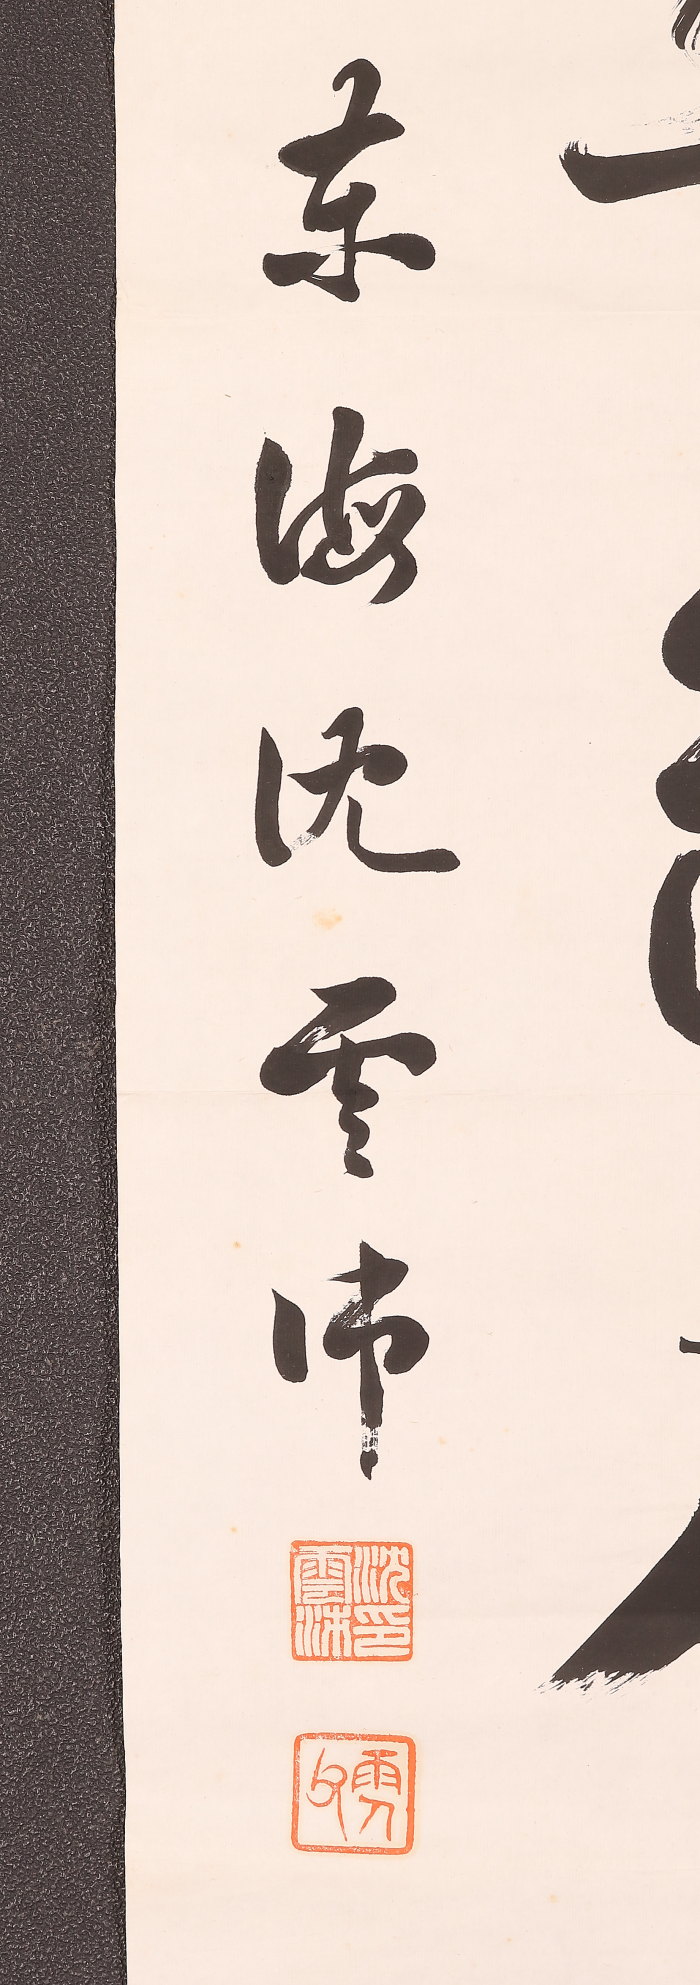 東海沈云沛
沈印
雲沛